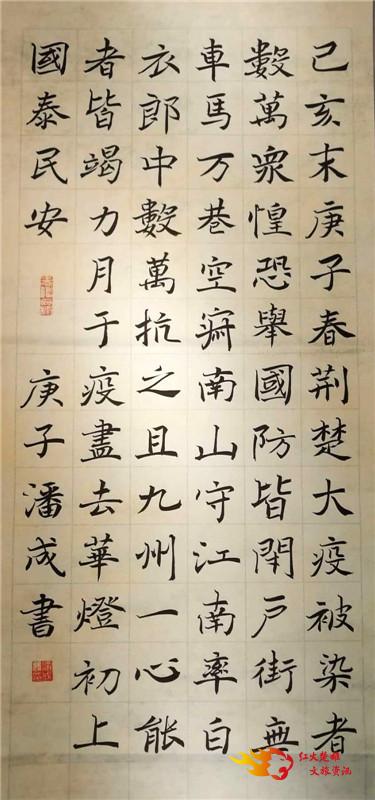 己亥末庚子春荆楚大疫被染者
數萬衆惶恐舉國防皆閉戸街無
車馬万巷空寂南山守江南率白
衣郎中數萬抗之且九州一心能
者皆竭力月于疫盡去華燈初上
國泰民安
庚子潘成書
红火楚雄
文旅资讯